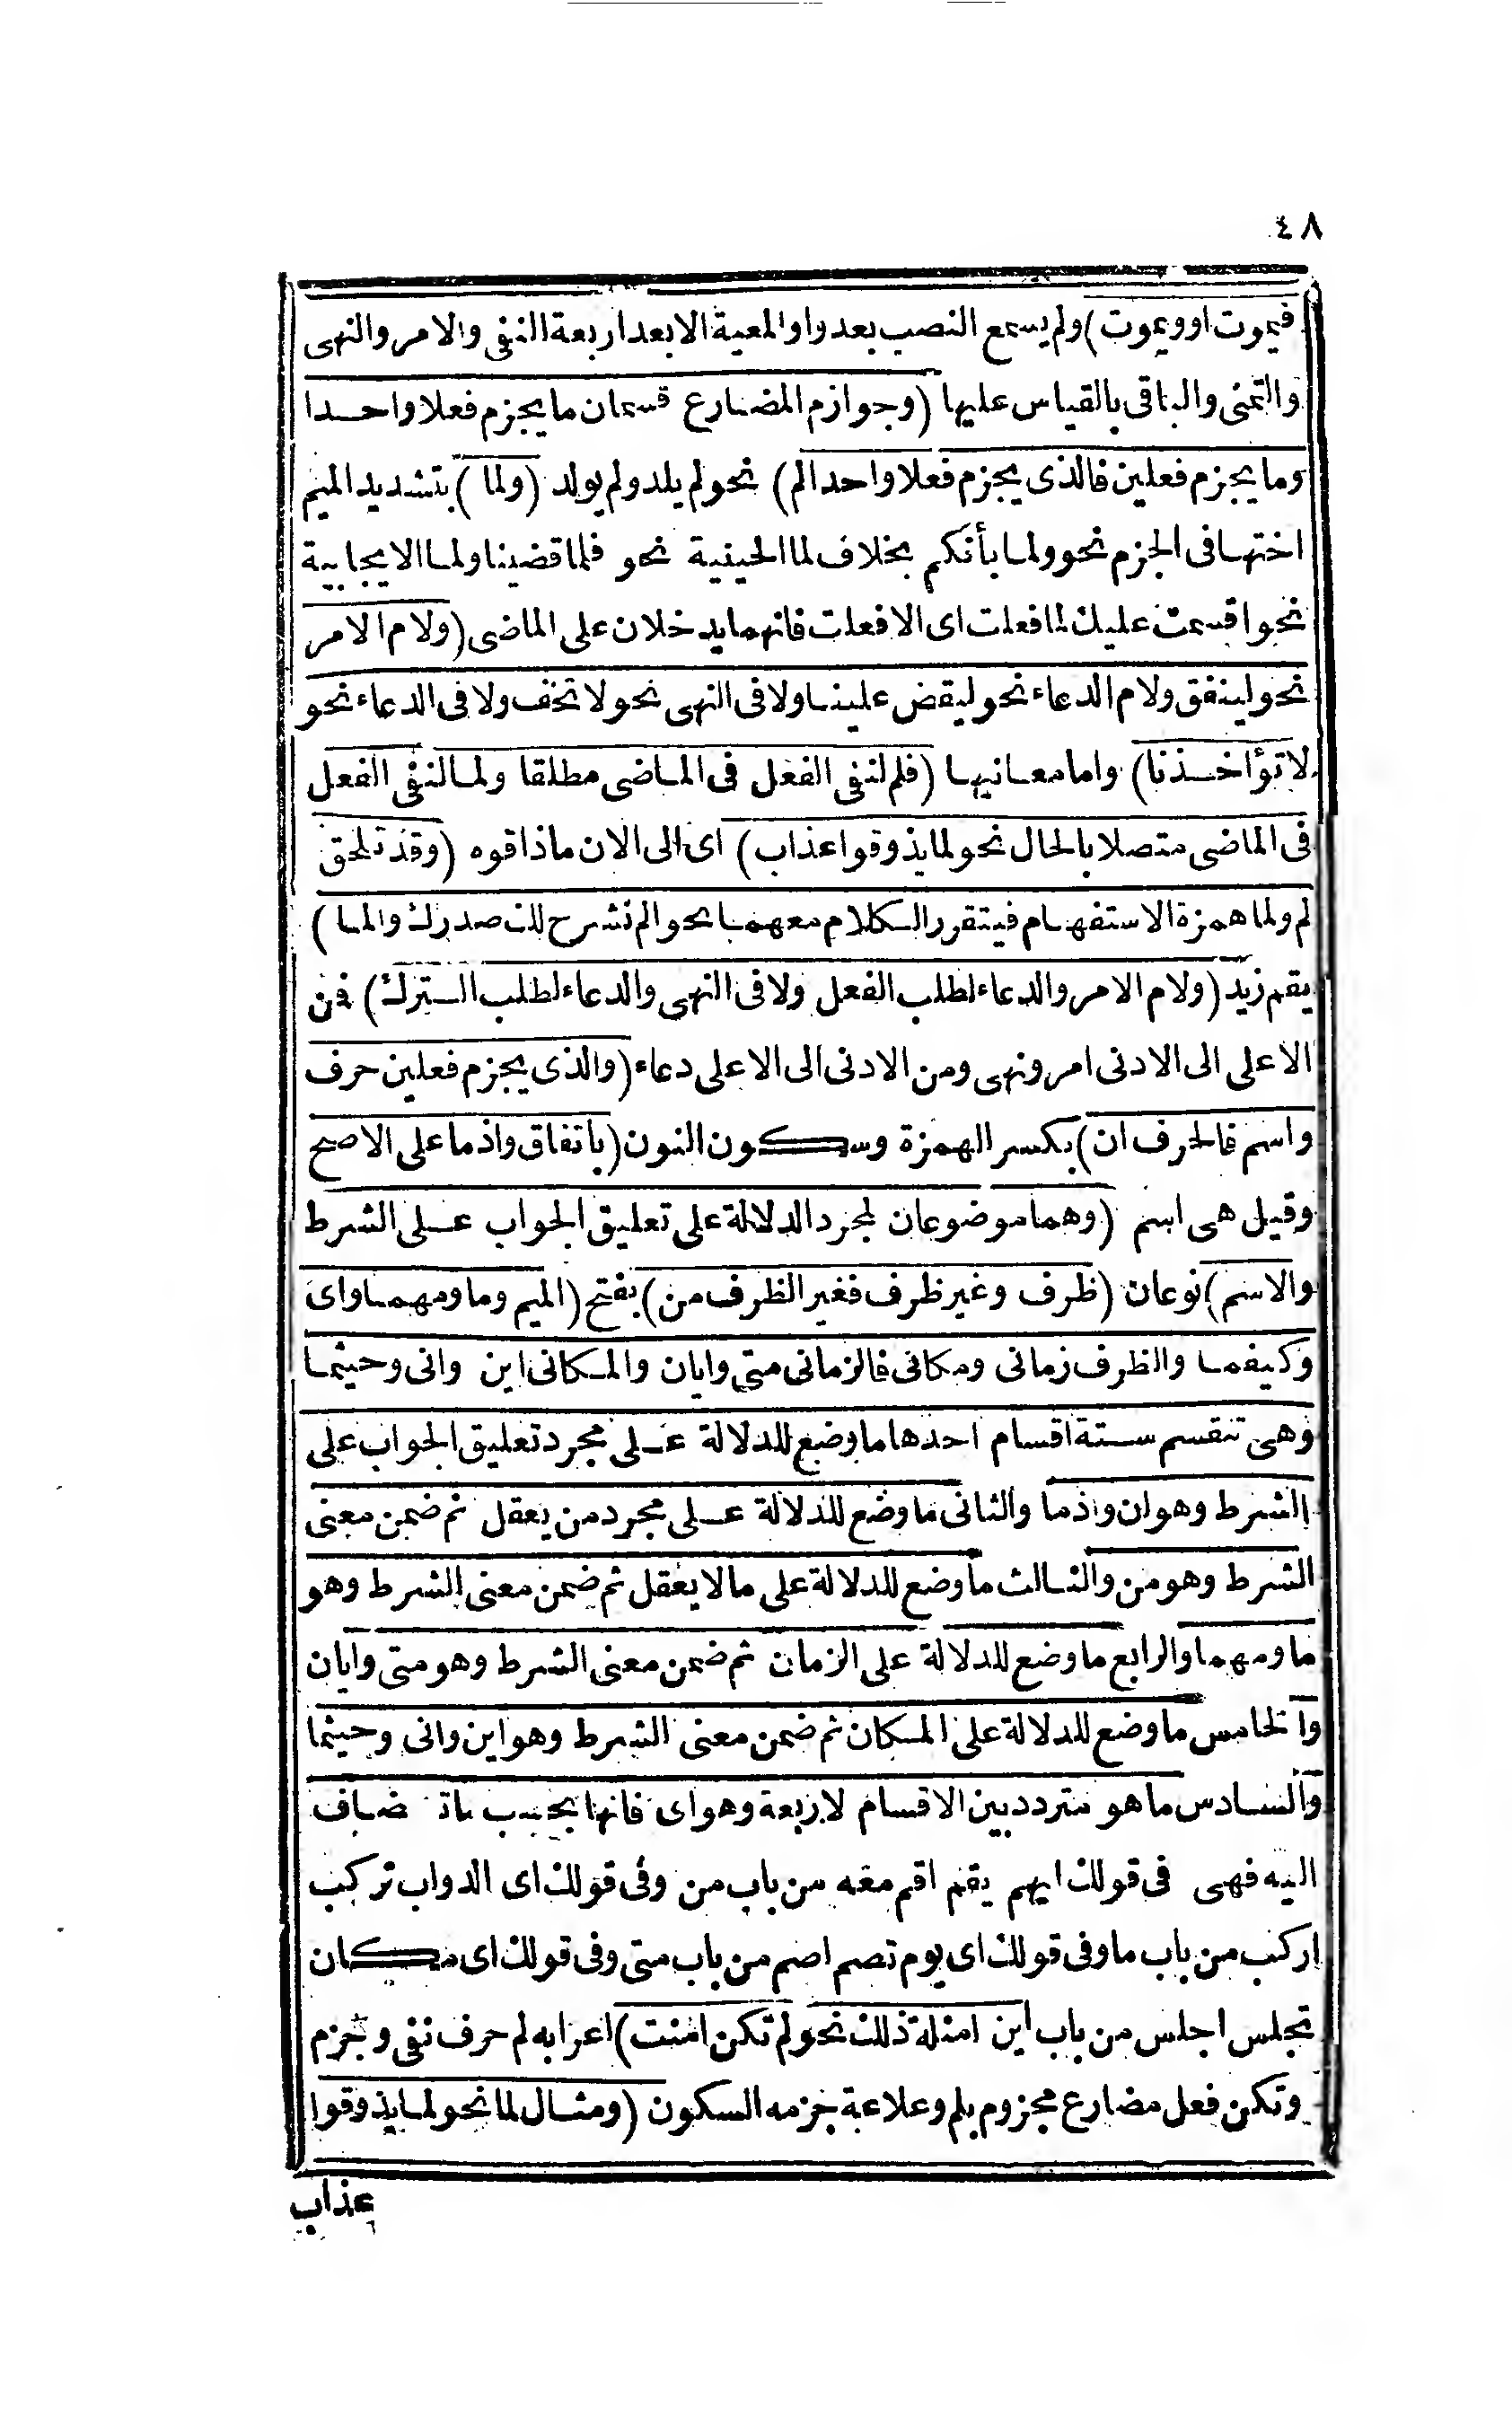 ٤٨
فيموت او ويموت) ولم يسمع النصب بعد واو المعية الا بعد اربعة النفى والامر والنهى
والتمنى والباقى بالقياس عليها (وجوازم المضارع قسمان ما يجزم فعلا واحدا
وما يجزم فعلين فالذى يجزم فعلا واحدا لم) نحو لم يلد ولم يولد (ولما) بتشديد الميم
اختها فى الجزم نحو ولما يأتكم بخلاف لما الحينية نحو فلما قضينا ولما الايجابية
نحو اقسمت عليك لما فعلت اى الا فعلت فانهما يدخلان على الماضى (ولام الامر
نحو لينفق ولام الدعاء نحو ليقض علينا ولا فى النهى نحو لا تخف ولا فى الدعاء نحو
لا تؤاخذنا) واما معانيها (فلم لنفى الفعل فى الماضى مطلقا ولما لنفى الفعل
فى الماضى متصلا بالحال نحو لما يذوقوا عذاب) اى الى الان ماذاقوه (وقد تلحق
لم ولما همزة الاستفهام فيتقرر الكلام معهما نحو الم نشرح لك صدرك والما)
يقم زيد (ولام الامر والدعاء لطلب الفعل ولا فى النهى والدعاء لطلب الترك) فمن
الاعلى الى الادنى امر ونهى ومن الادنى الى الاعلى دعاء (والذى يجزم فعلين حرف
واسم فالحرف ان) بكسر الهمزة وسكون النون (باتفاق واذما على الاصح
وقيل هى اسم (وهما موضوعان لمجرد الدلالة على تعليق الجواب على الشرط
والاسم) نوعان (ظرف وغير ظرف فغير الظرف من) بفتح (الميم وما ومهما واى
وكيفما والظرف زمانى ومكانى فالزمانى متى وايان والمكانى اين وانى وحيثما
وهى تنقسم ستة اقسام احدها ما وضع للدلالة على مجرد تعليق الجواب على
الشرط وهو ان واذما والثانى ما وضع للدلالة على مجرد من يعقل ثم ضمن معنى
الشرط وهو من والثالث ما وضع للدلالة على ما لا يعقل ثم ضمن معنى الشرط وهو
ما ومهما والرابع ما وضع للدلالة على الزمان ثم ضمن معنى الشرط وهو متى وايان
والخامس ما وضع للدلالة على المكان ثم ضمن معنى الشرط وهو اين وانى وحيثما
والسادس ما هو متردد بين الاقسام لاربعة وهو اى فانها بحسب ما تضاف
اليه فهى فى قولك ايهم يقم اقم معه من باب من وفى قولك اى الدواب تركب
اركب من باب ما وفى قولك اى يوم تصم اصم من باب متى وفى قولك اى مكان
تجلس اجلس من باب اين امثلة ذلك نحو لم تكن امنت) اعرابه لم حرف نفى وجزم
وتكن فعل مضارع مجزوم بلم وعلامة جزمه السكون (ومثال لما نحو لما يذوقوا
عذاب